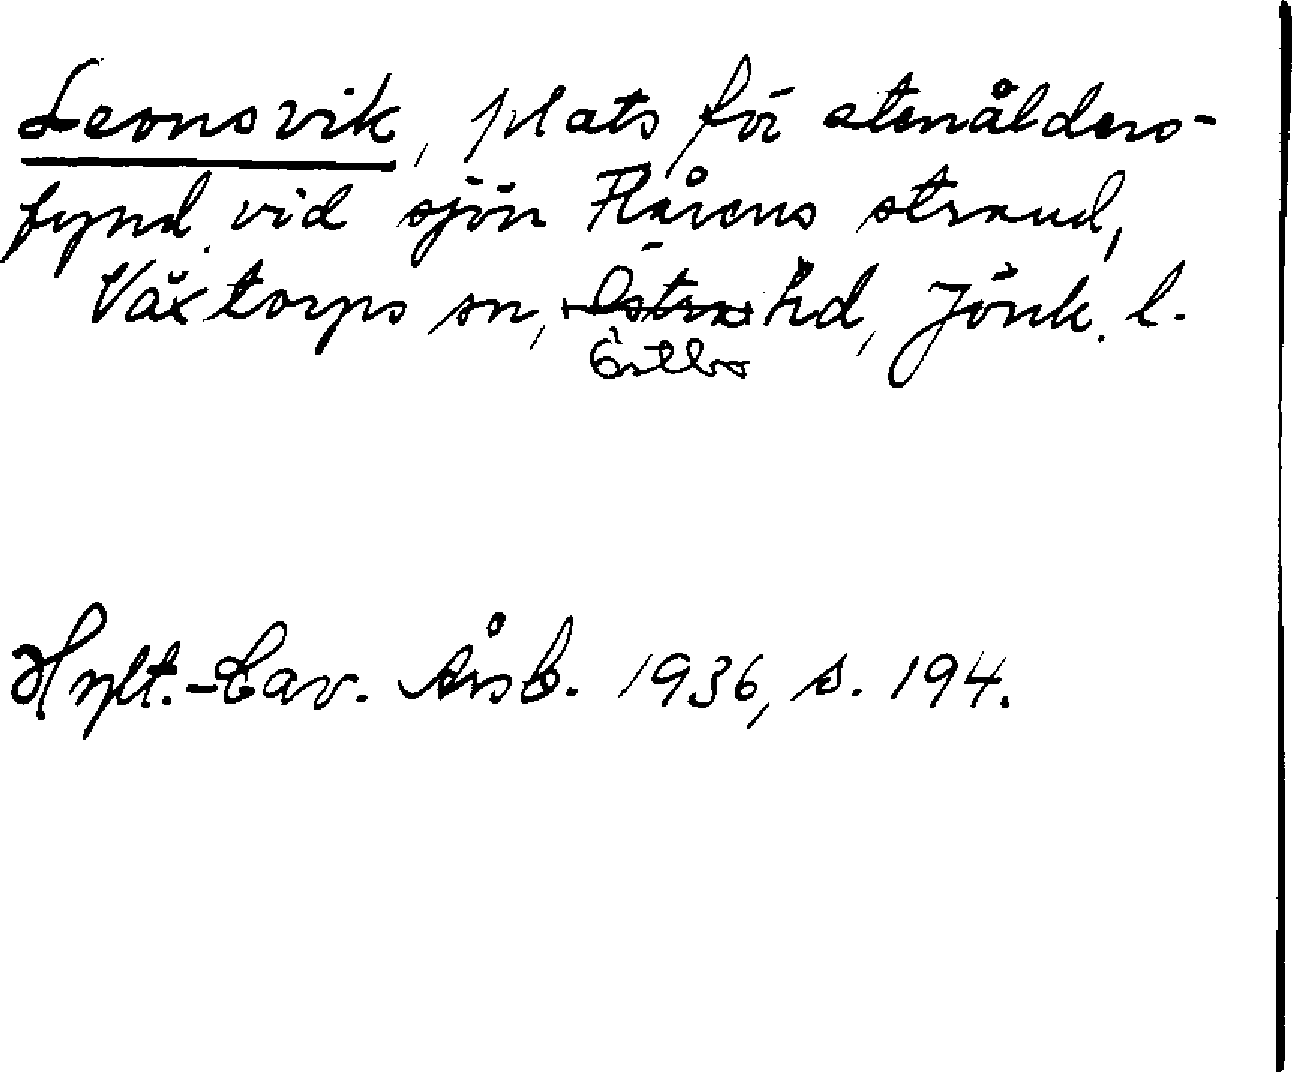 Leonsvik, plats för stenålders-
fynd vid sjön Flårens strand,
Växtorps sn, Östra hd, Jönk. l.
Östbo
Hylt.-Cav. Årsb. 1936, s. 194.